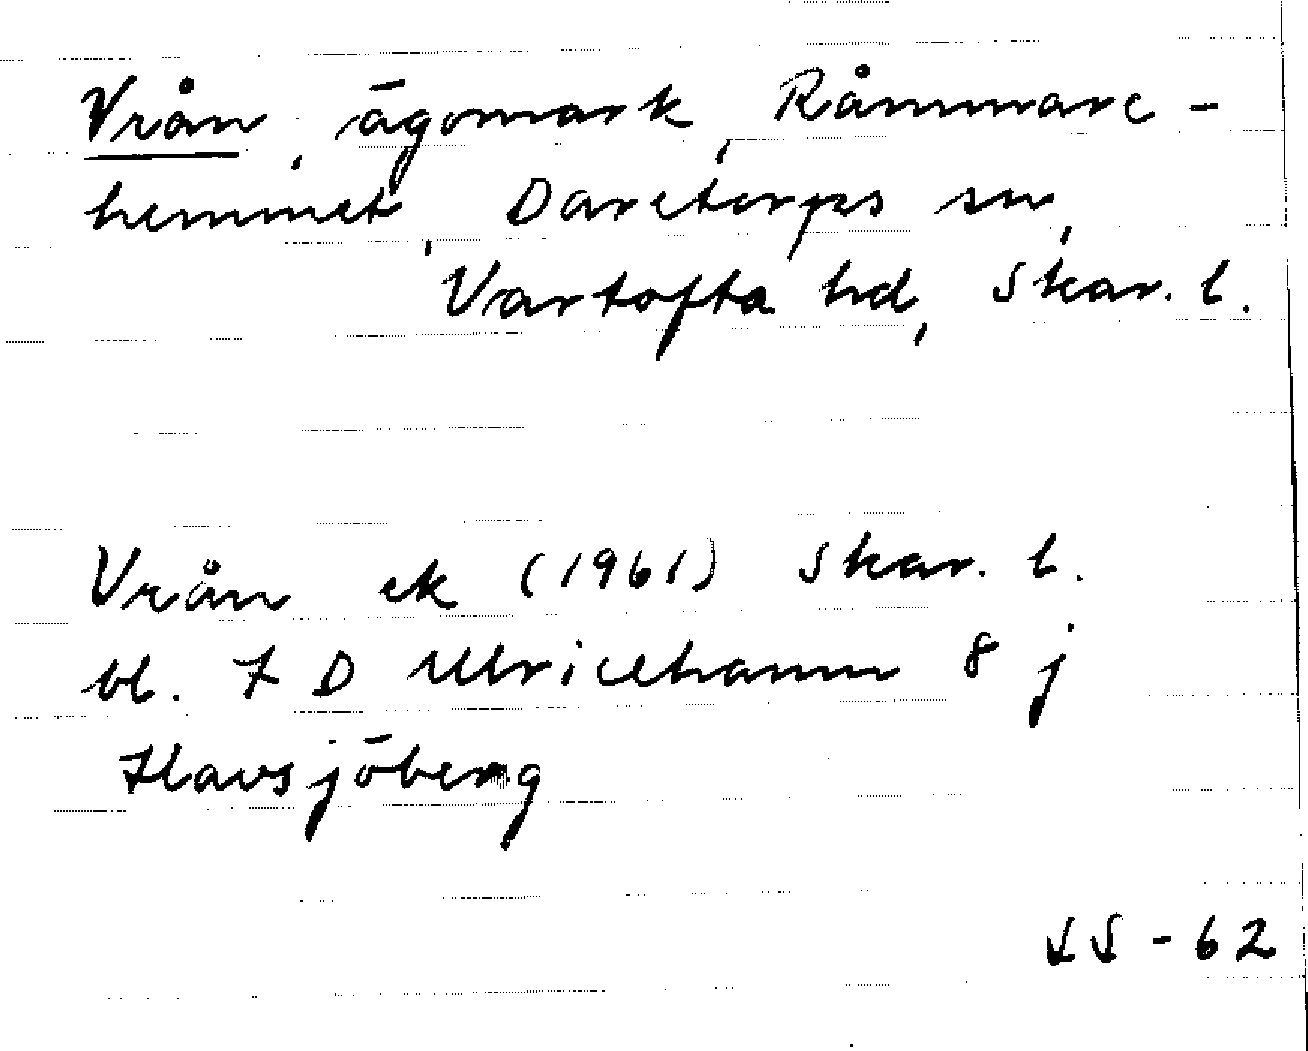 Vrån, ägomark, Råmmare-
hemmet, Daretorps sn,
Vartofta hd, Skar. l.
Vrån ek (1961) Skar. l.
bl. 7 D Ulricehamn 8 j
Havsjöberg
SS-62